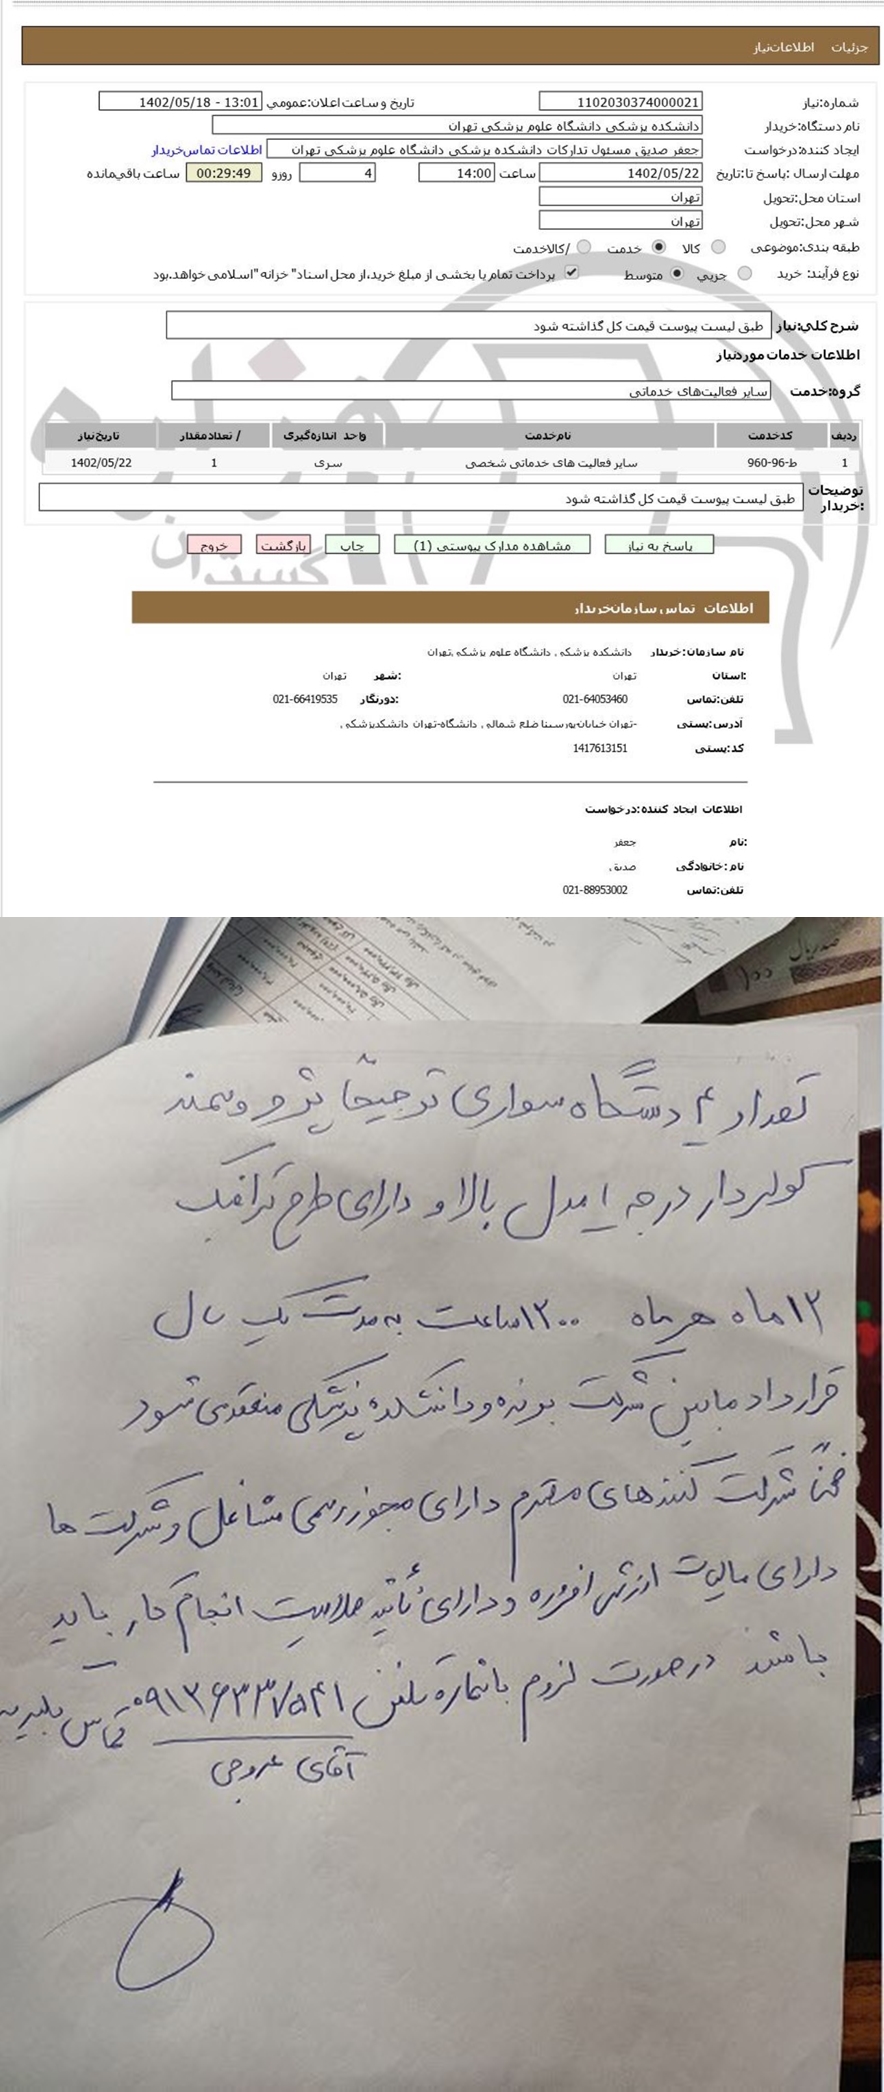 جزئیات اطلاعات نیاز
شماره نیاز: 1102030374000021 تاریخ و ساعت اعلان عمومي: 1402/05/18 - 13:01
نام دستگاه خریدار: دانشکده پزشکی دانشگاه علوم پزشکی تهران
ایجاد کننده درخواست: جعفر صدیق مسئول تدارکات دانشکده پزشکی دانشگاه علوم پزشکی تهران اطلاعات تماس خریدار
مهلت ارسال پاسخ تا تاریخ: 1402/05/22 ساعت 14:00 4 روز و 00:29:49 ساعت باقی مانده
استان محل تحویل: تهران
شهر محل تحویل: تهران
طبقه بندی موضوعی: کالا خدمت کالا/خدمت
نوع فرآیند خرید: جزیی متوسط پرداخت تمام یا بخشی از مبلغ خرید،از محل اسناد "خزانه اسلامی" خواهد بود.
شرح کلی نیاز: طبق لیست پیوست قیمت کل گذاشته شود
اطلاعات خدمات مورد نیاز
گروه خدمت: سایر فعالیت‌های خدماتی
ردیف کد خدمت نام خدمت واحد اندازه گیری تعداد / مقدار تاریخ نیاز
1 ط-96-960 سایر فعالیت های خدماتی شخصی سری 1 1402/05/22
توضیحات خریدار: طبق لیست پیوست قیمت کل گذاشته شود
پاسخ به نیاز مشاهده مدارک پیوستی (1) چاپ بازگشت خروج
هزاره
گستران
اطلاعات تماس سازمان خریدار
نام سازمان خریدار: دانشکده پزشکی دانشگاه علوم پزشکی تهران
استان: تهران شهر: تهران
تلفن تماس: 021-64053460 دورنگار: 021-66419535
آدرس پستی: تهران خیابان پورسینا ضلع شمالی دانشگاه تهران-دانشکده پزشکی-
کد پستی: 1417613151
اطلاعات ایجاد کننده درخواست:
نام: جعفر
نام خانوادگی: صدیق
تلفن تماس: 021-88953002
صد ریال
تعداد ۴ دستگاه سواری ترجیحاً پژو و سمند
کولردار درجه ۱ مدل بالا و دارای طرح ترافیک
۱۲ ماه هر ماه ۱۲۰۰ ساعت به مدت یک سال
قرارداد مابین شرکت بوده و دانشکده پزشکی منعقد می شود
ضمناً شرکت کننده های محترم دارای مجوز رسمی مشاغل و شرکت ها
دارای مالیات ارزش افزوده و دارای تأئید صلاحیت انجام کار باید
باشند در صورت لزوم با شماره تلفن ۰۹۱۲۶۳۳۷۵۴۱ تماس بگیرید
آقای عروجی